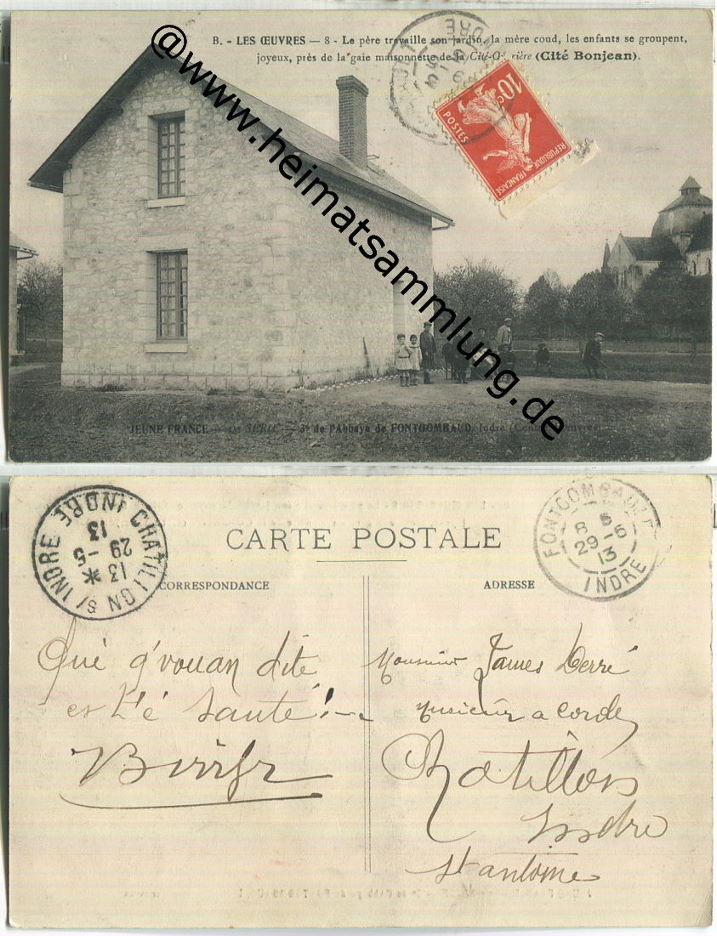 B. - LES ŒUVRES — 8 - Le père travaille son jardin, la mère coud, les enfants se groupent,
joyeux, près de la gaie maisonnette de la Cité-Ouvrière (Cité Bonjean).
10c
POSTES
REPUBLIQUE FRANÇAISE
@www.heimatsammlung.de
JEUNE FRANCE — SERIE — 3e de l'Abbaye de FONTGOMBAUD, Indre
CHATILLON S/ INDRE INDRE
13
29-5
13
CARTE POSTALE
FONTGOMBAULT
8
29-5
13
INDRE
CORRESPONDANCE
ADRESSE
Qué q'vouan dité
es t'é santé !
Monsieur James Derré
Musicien a corde
Chatillon
Indre
St antoine